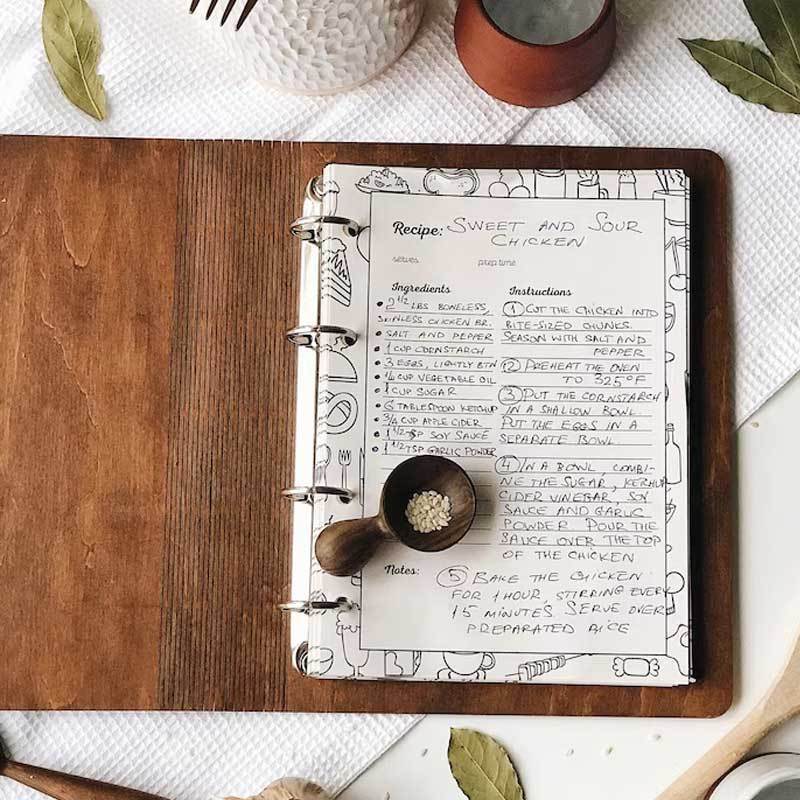 Recipe: SWEET AND SOUR
CHICKEN
serves
prep time
Ingredients
• 2 1/2 LBS BONELESS,
SKINLESS CHICKEN BR.
• SALT AND PEPPER
• 1 CUP CORNSTARCH
• 3 EGGS, LIGHTLY BTN
• 1/4 CUP VEGETABLE OIL
• 1 CUP SUGAR
• 6 TABLESPOON KETCHUP
• 3/4 CUP APPLE CIDER
• 1 1/2 TSP SOY SAUCE
• 1 1/2 TSP GARLIC POWDER
Instructions
① CUT THE CHICKEN INTO
BITE-SIZED CHUNKS.
SEASON WITH SALT AND
PEPPER
② PREHEAT THE OVEN
TO 325°F
③ PUT THE CORNSTARCH
IN A SHALLOW BOWL.
PUT THE EGGS IN A
SEPARATE BOWL.
④ IN A BOWL, COMBI-
NE THE SUGAR, KETCHUP
CIDER VINEGAR, SOY
SAUCE AND GARLIC
POWDER POUR THE
SAUCE OVER THE TOP
OF THE CHICKEN
Notes:
⑤ BAKE THE CHICKEN
FOR 1 HOUR, STIRRING EVERY
15 MINUTES SERVE OVER
PREPARATED RICE